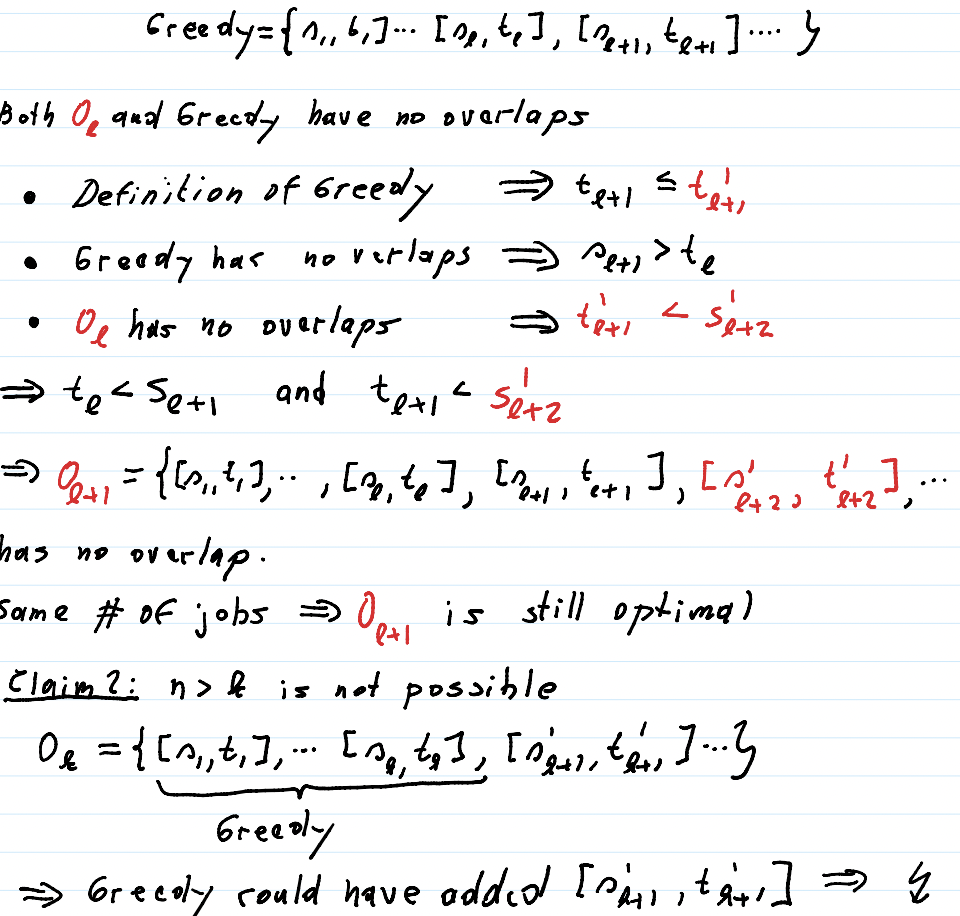 Greedy={s₁, t₁]... [sₗ, tₗ], [sₗ₊₁, tₗ₊₁].... }
Both Oₗ and Greedy have no overlaps
• Definition of Greedy ⇒ tₗ₊₁ ≤ t'ₗ₊₁
• Greedy has no verlaps ⇒ sₗ₊₁ > tₗ
• Oₗ has no overlaps ⇒ t'ₗ₊₁ < s'ₗ₊₂
⇒ tₗ < sₗ₊₁ and tₗ₊₁ < s'ₗ₊₂
⇒ Oₗ₊₁ = {[s₁, t₁],.. , [sₗ, tₗ], [sₗ₊₁, tₗ₊₁], [s'ₗ₊₂, t'ₗ₊₂], ...
has no overlap.
same # of jobs ⇒ Oₗ₊₁ is still optimal
Claim 2: n > k is not possible
Oₖ = {[s₁, t₁],... [sₖ, tₖ], [s'ₖ₊₁, t'ₖ₊₁]...}
Greedy
⇒ Greedy could have added [s'ₖ₊₁, t'ₖ₊₁] ⇒ ↯